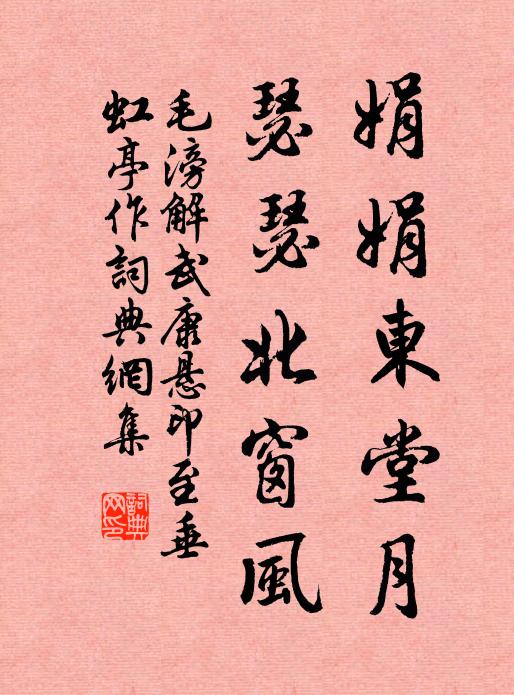 娟娟東堂月
瑟瑟北窗風
毛滂解武康悬印至垂
虹亭作詞典網集
詞典
网印